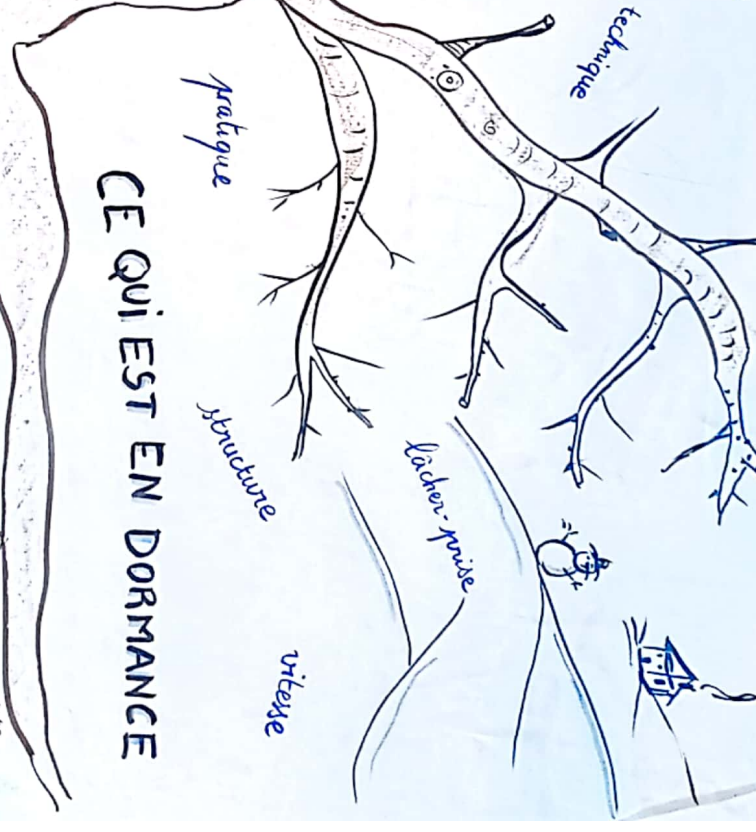 technique
pratique
lâcher-prise
structure
vitesse
CE QUI EST EN DORMANCE